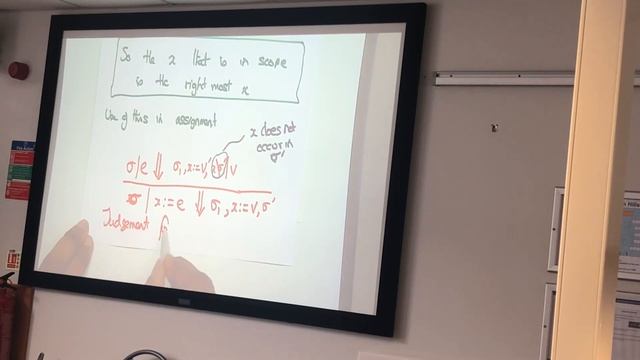 So the x that is in scope
is the right most x
Use of this in assignment
x does not
occur in
σ'
σ|e ⇓ σ₁, x:=v,' σ'|v
σ | x:= e ⇓ σ₁, x:=v, σ'
Judgement